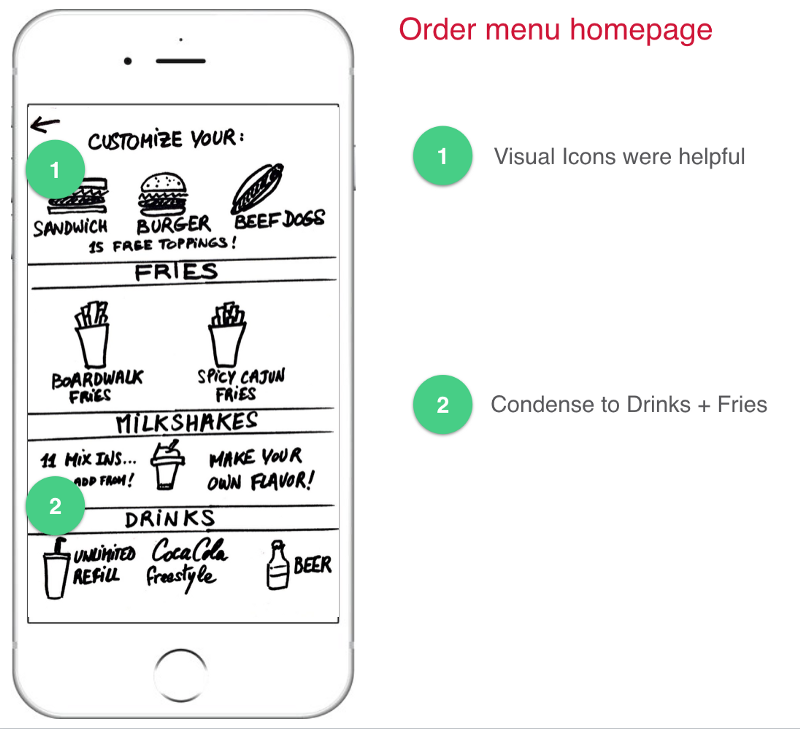 Order menu homepage
CUSTOMIZE YOUR:
1
SANDWICH BURGER BEEF DOGS
15 FREE TOPPINGS!
FRIES
BOARDWALK FRIES
SPICY CAJUN FRIES
MILKSHAKES
11 MIX INS...
ADD FROM!
MAKE YOUR
OWN FLAVOR!
2
DRINKS
UNLIMITED
REFILL
CocaCola
freestyle
BEER
1 Visual Icons were helpful
2 Condense to Drinks + Fries